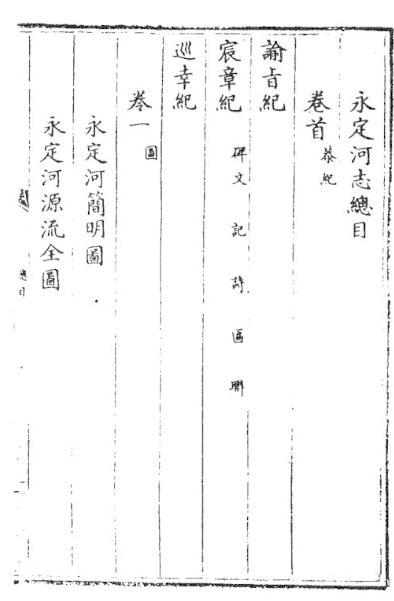 永定河志總目
卷首 恭紀
諭旨紀
宸章紀 碑文 記 詩 匾 聯
巡幸紀
卷一 圖
永定河簡明圖
永定河源流全圖
總目